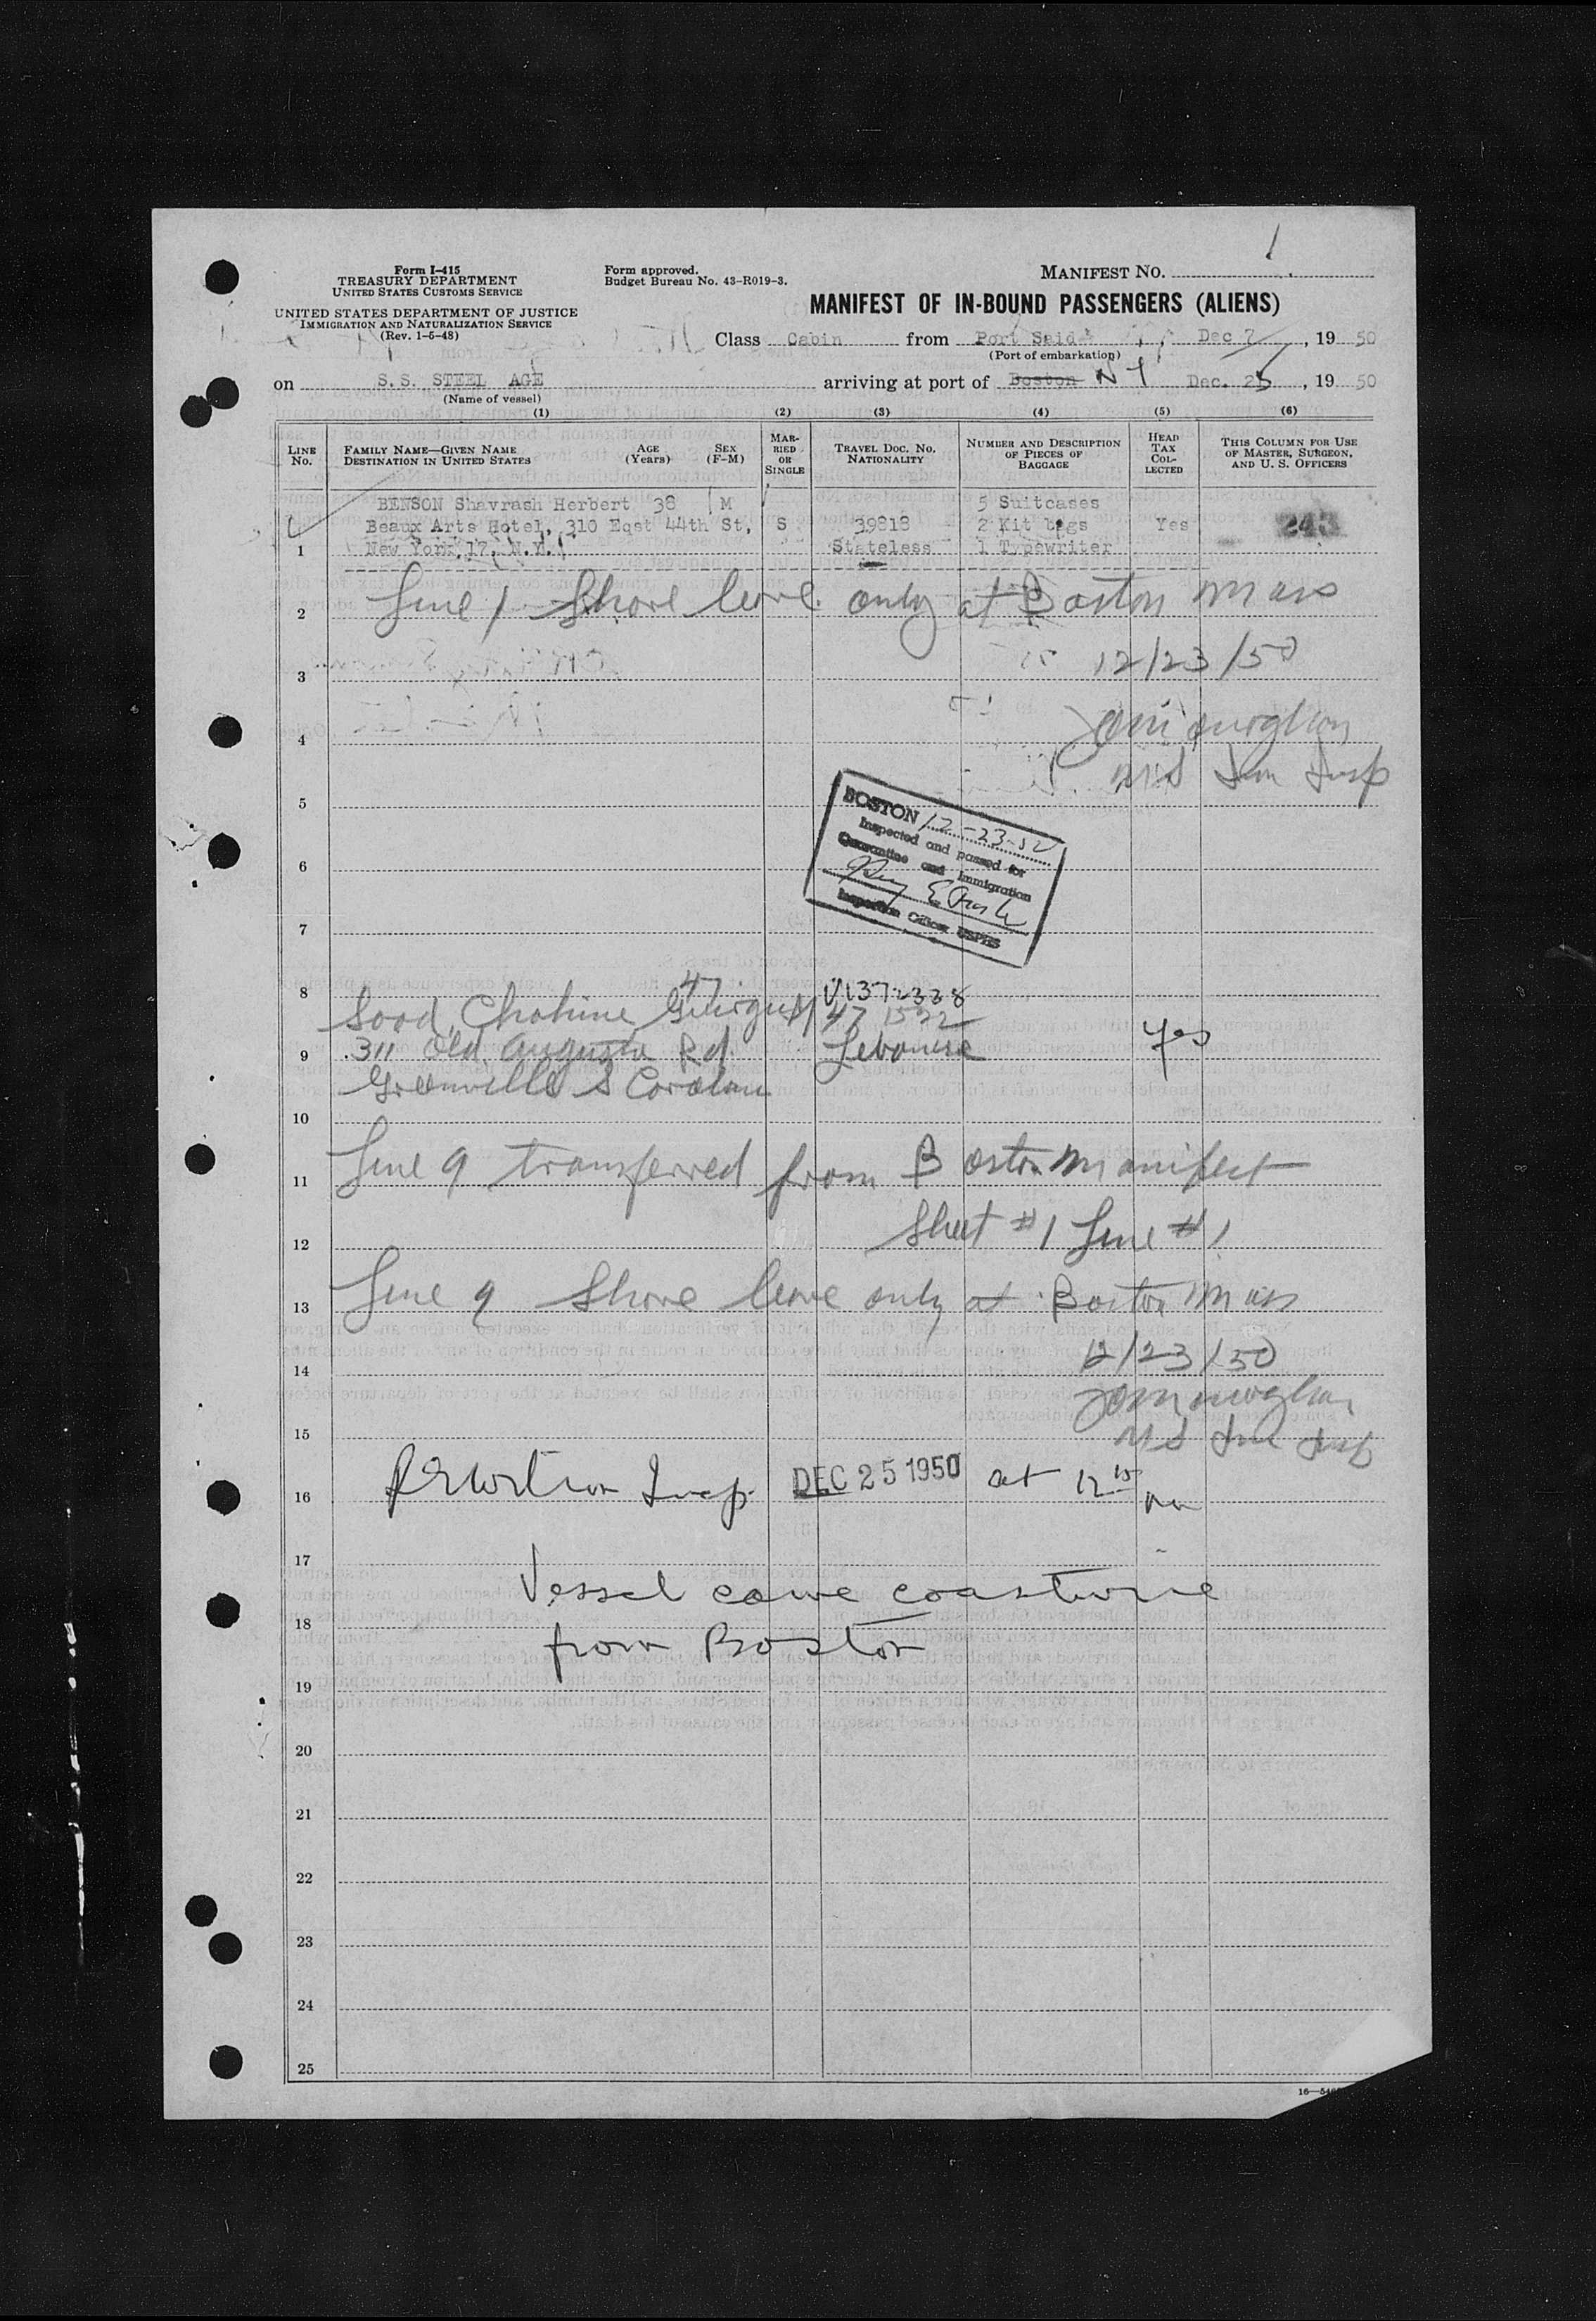 1
Form I-415
TREASURY DEPARTMENT
UNITED STATES CUSTOMS SERVICE
UNITED STATES DEPARTMENT OF JUSTICE
IMMIGRATION AND NATURALIZATION SERVICE
(Rev. 1-6-48)
Form approved.
Budget Bureau No. 43-R019-3.
MANIFEST NO.
MANIFEST OF IN-BOUND PASSENGERS (ALIENS)
Class Cabin from Port Said Dec 7, 19 50
(Port of embarkation)
on S.S. STEEL AGE arriving at port of Boston N Y Dec. 25, 19 50
(Name of vessel)
(1) (2) (3) (4) (5) (6)
LINE NO.
FAMILY NAME—GIVEN NAME
DESTINATION IN UNITED STATES
AGE (Years)
SEX (F-M)
MARRIED OR SINGLE
TRAVEL DOC. NO.
NATIONALITY
NUMBER AND DESCRIPTION OF PIECES OF BAGGAGE
HEAD TAX COLLECTED
THIS COLUMN FOR USE OF MASTER, SURGEON, AND U. S. OFFICERS
BENSON Shavrash Herbert 38 M 5 Suitcases
Beaux Arts Hotel, 310 Eqst 44th St, S 39818 2 Kit bags Yes 243
1 New York 17, N.Y. Stateless 1 Typewriter
2 Line 1 Shore leave only at Boston Mass
3 12/23/50
4
5
BOSTON 12-23-50
Inspected and passed for
Quarantine and Immigration
Inspection Officer USPHS
6
7
8 47 V1372328
Chahine M 1522
9 311 Old Augusta Rd. Lebanese Yes
Greenville S
10
11 Line 9 transferred from Boston Manifest
12 Sheet #1 Line #1
13 Line 9 Shore leave only at Boston Mass
14 12/23/50
15
16 Insp. DEC 25 1950 at 12
17
Vessel came coastwise
18
from Boston
19
20
21
22
23
24
25